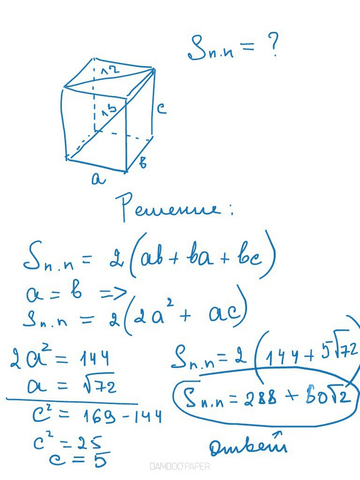 Sп.п = ?
12
13
c
в
a
Решение:
Sп.п = 2(ab + ba + bc)
a = b =>
Sп.п = 2(2a² + ac)
2a² = 144
a = √72
c² = 169 - 144
c² = 25
c = 5
Sп.п = 2(144 + 5√72)
Sп.п = 288 + 60√2
ответ
BAMBOO PAPER